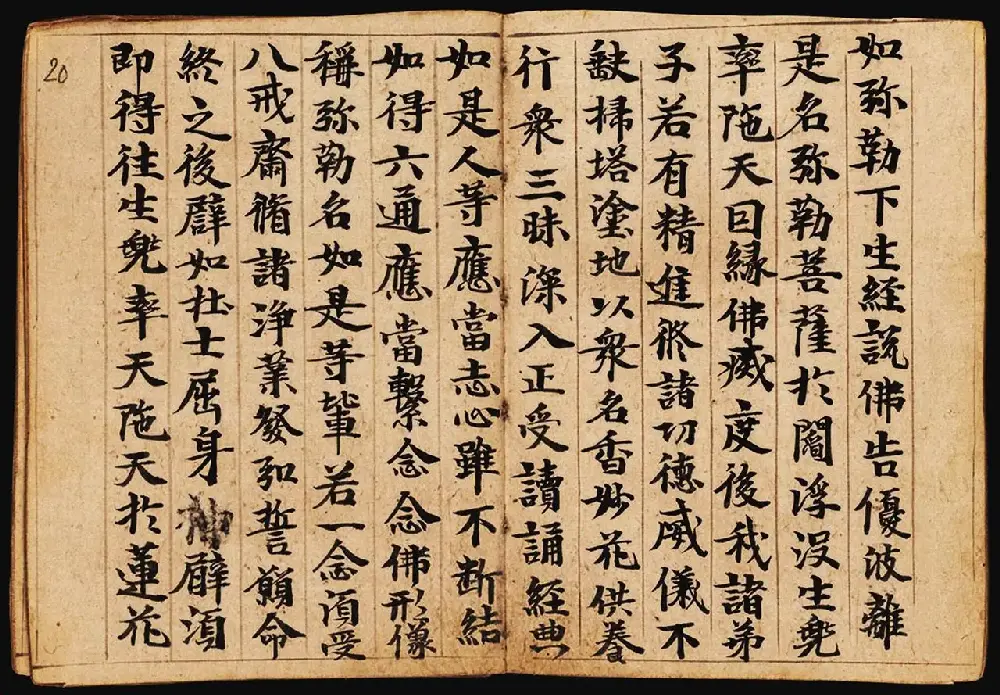 如弥勒下生経説佛告優波離
是名弥勒菩薩扵閻浮没生兜
率陁天囙縁佛滅度後我諸弟
子若有精進修諸功徳威儀不
缺掃塔塗地以衆名香妙花供養
行衆三昧深入正受讀誦経典
如是人等應當志心雖不断結
如得六通應當繋念念佛形像
稱弥勒名如是等軰若一念湏受
八戒齋脩諸浄業發弘誓願命
終之後譬如壮士屈身臂湏
即得往生兜率天陁天扵蓮花
20